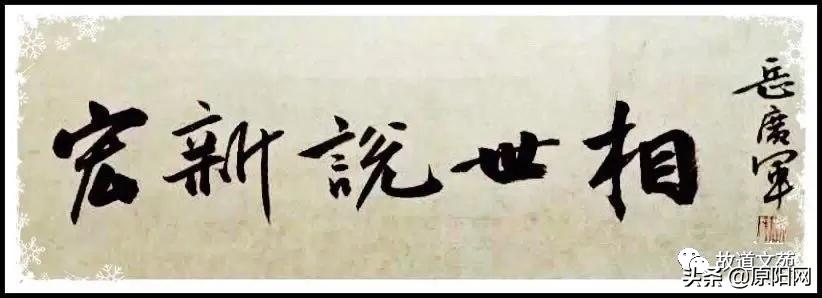 宏新說世相
岳广军
故道文苑
头条@原阳网